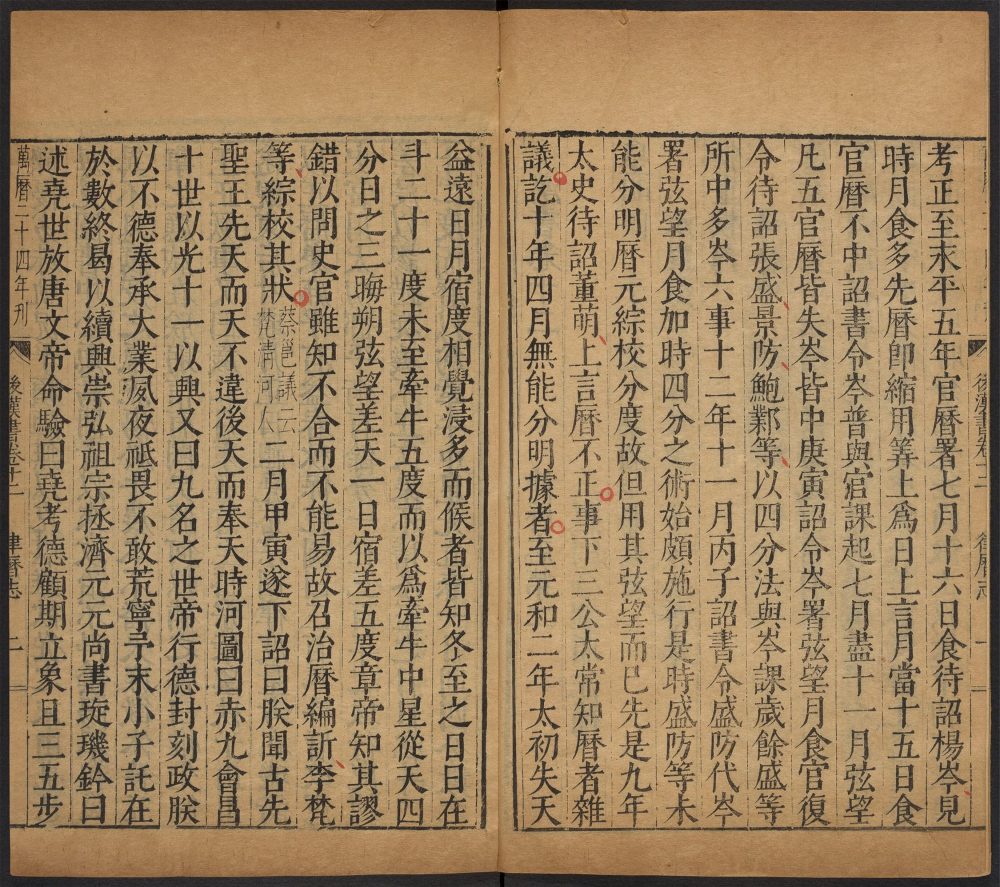 考正至永平五年官曆署七月十六日食待詔楊岑見
時月食多先曆卽縮用筭上爲日上言月當十五日食
官曆不中詔書令岑普與官課起七月盡十一月弦望
凡五官曆皆失岑皆中庚寅詔令岑署弦望月食官復
令待詔張盛景防鮑鄴等以四分法與岑課歲餘盛等
所中多岑六事十二年十一月丙子詔書令盛防代岑
署弦望月食加時四分之術始頗施行是時盛防等未
能分明曆元綜校分度故但用其弦望而已先是九年
太史待詔董萌上言曆不正事下三公太常知曆者雜
議訖十年四月無能分明據者至元和二年太初失天
益遠日月宿度相覺浸多而候者皆知冬至之日日在
斗二十一度未至牽牛五度而以爲牽牛中星從天四
分日之三晦朔弦望差天一日宿差五度章帝知其謬
錯以問史官雖知不合而不能易故召治曆編訢李梵
等綜校其狀蔡邕議云梵淸河人二月甲寅遂下詔曰朕聞古先
聖王先天而天不違後天而奉天時河圖曰赤九會昌
十世以光十一以興又曰九名之世帝行德封刻政朕
以不德奉承大業夙夜祗畏不敢荒寧予末小子託在
於數終曷以續興崇弘祖宗拯濟元元尚書琁璣鈐曰
述堯世放唐文帝命驗曰堯考德顧期立象且三五步
萬曆二十四年刊 後漢書卷十二 律曆志 二